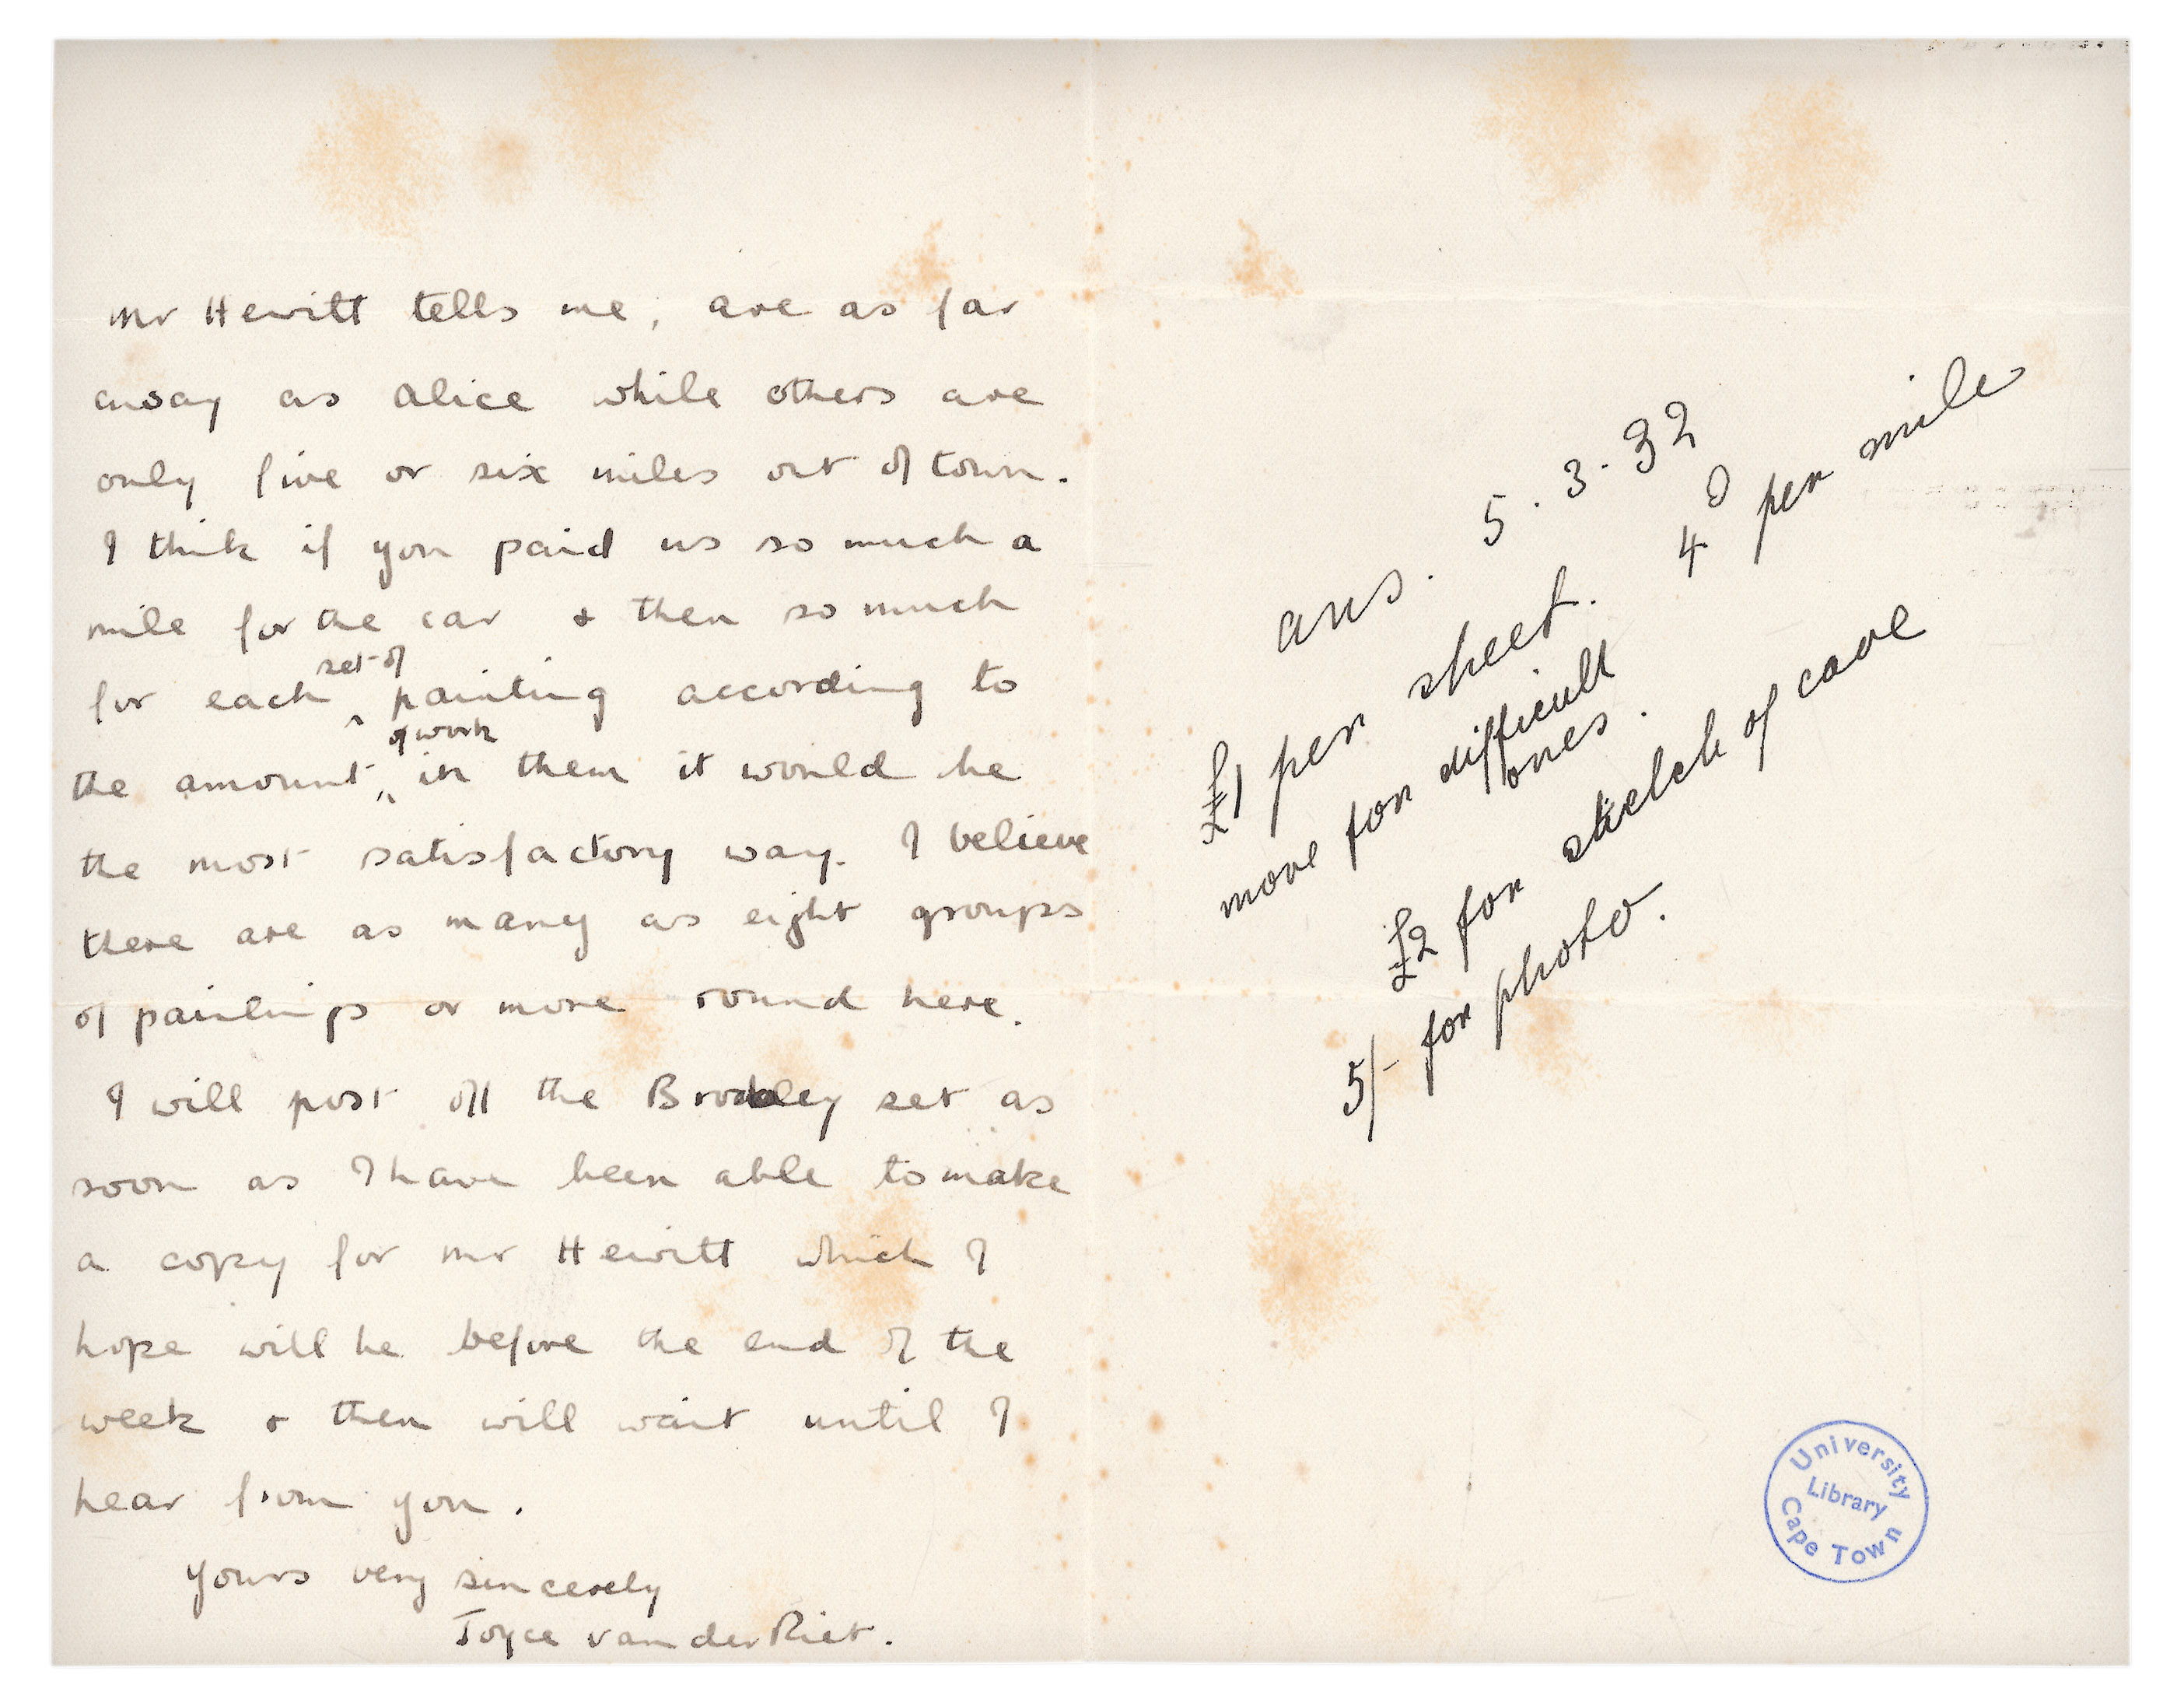 Mr Hewitt tells me, are as far
away as Alice while others are
only five or six miles out of town.
I think if you paid us so much a
mile for the car + then so much
for each set of painting according to
the amount of work in them it would be
the most satisfactory way. I believe
there are as many as eight groups
of paintings or more round here.
I will post off the set as
soon as I have been able to make
a copy for Mr Hewitt which I
hope will be before the end of the
week + then will wait until I
hear from you.
Yours very sincerely
Joyce van der Riet.
ans. 5.3.32
£1 per sheet. 4d per mile
more for difficult
ones.
£2 for sketch of cave
5/- for photo.
University
Library
Cape Town